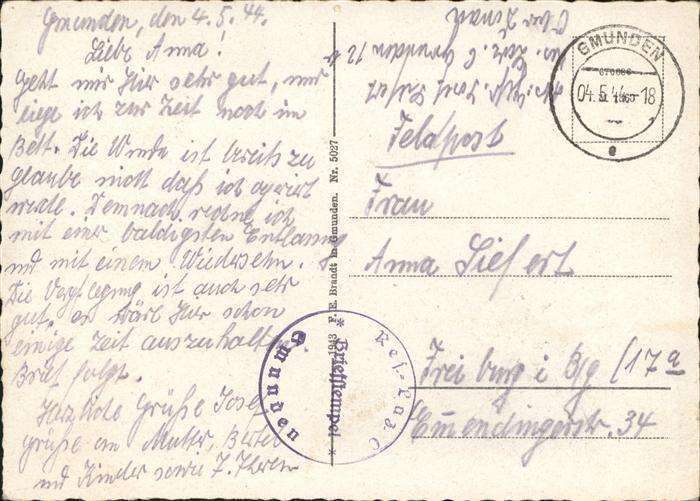 Gmunden, den 4.5.44.
Liebe Anna!
geht mir Hier sehr gut, nur
liege ich zur Zeit noch im
Bett. Die Wunde ist bereits zu
glaube nicht daß ich operiert
werde. Demnach rechne ich
mit einer baldigsten Entlassung
und mit einem Wiedersehn.
Die Verpflegung ist auch sehr
gut, es wäre Hier schon
einige Zeit auszuhalten.
Brief folgt.
Herzliche Grüße Josef
grüße an Mutter,
und Kinder sowie
F. E. Brandt in Gmunden. Nr. 5027
1943
Gmunden
* Briefstempel *
Res.-Laz.
GMUNDEN
04.5.44-18
e
Gmunden 12
Feldpost
Frau
Anna Siefert
Freiburg i Brg (17a
Emmendingerstr. 34